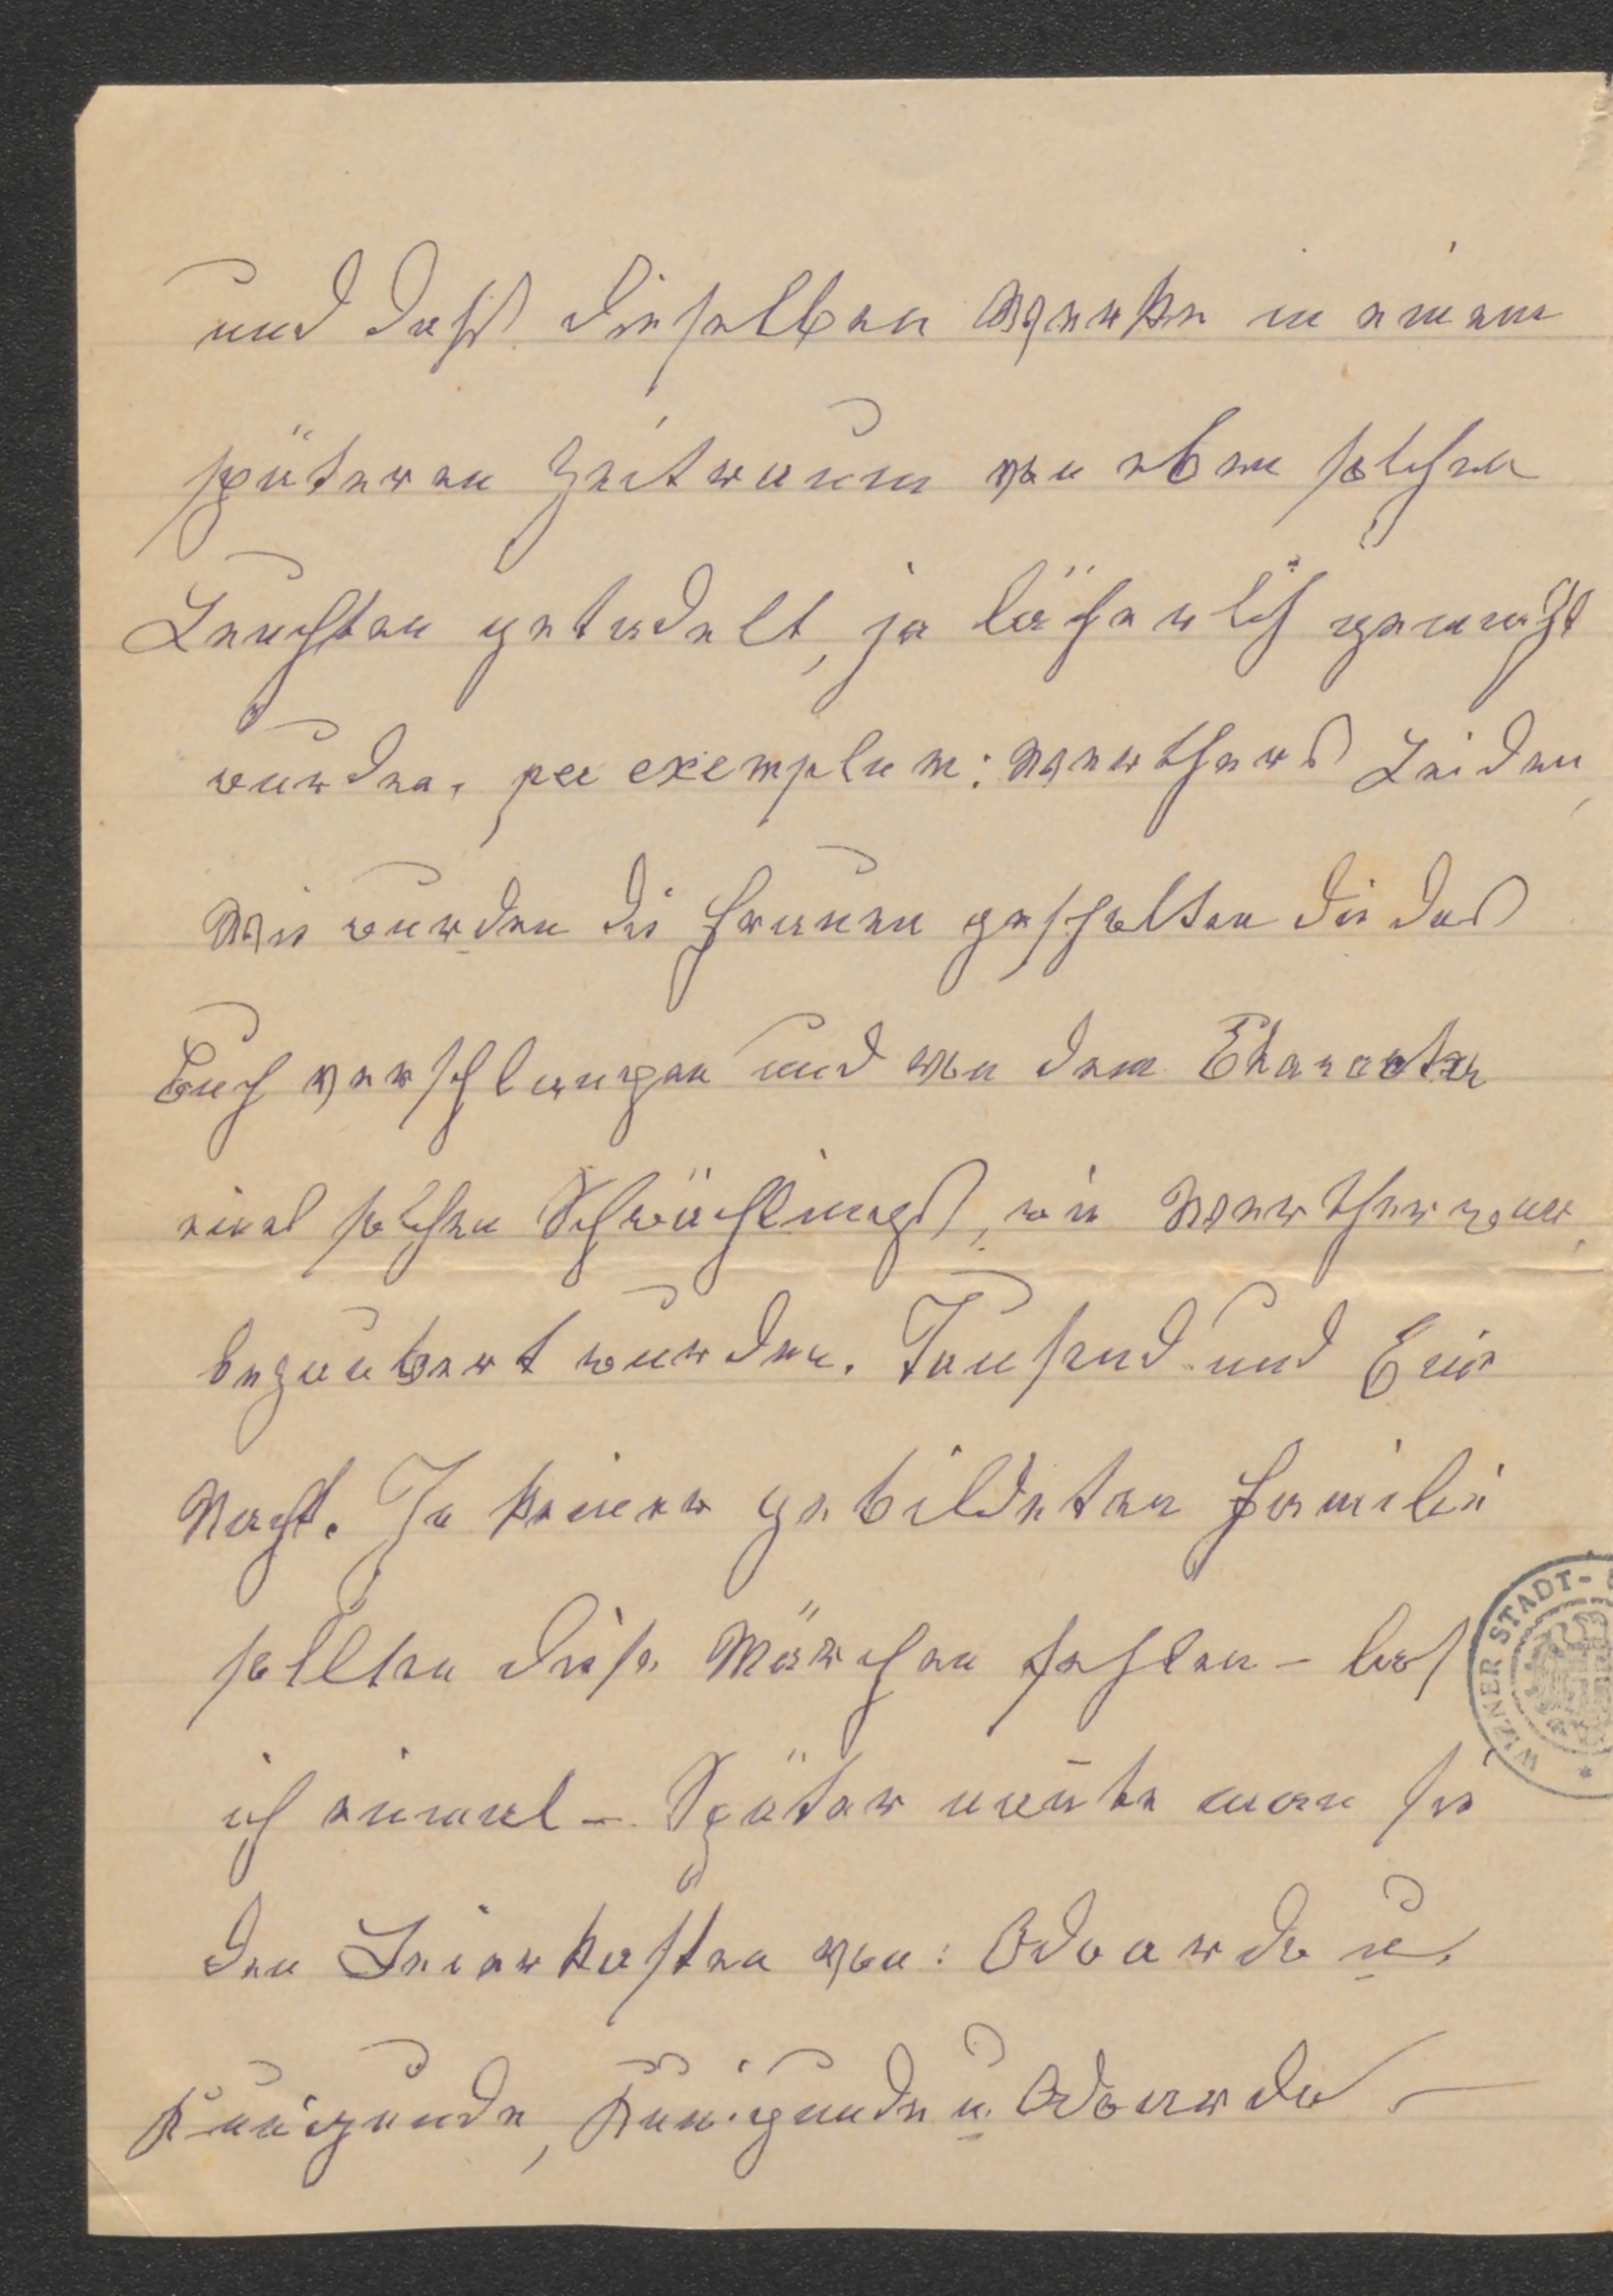 und daß dieselben Werke in einem
späteren Zeitraum von eben solchen
Leuchten getadelt, ja lächerlich gemacht
wurden. per exemplum: Werthers Leiden,
Wie wurden die Frauen gescholten die das
Buch verschlangen und von dem Charackter
eines solchen Schwächlings, wie Werther war,
bezaubert wurden. Tausend und Eine
Nacht. In keiner gebildeten Familie
sollten diese Märchen fehlen – las
WIENER STADT-
ich einmal – Später nan̄te man sie
den Leierkasten von: Odoardo u.
Kunigunde, Kunigunde u. Odoardo –